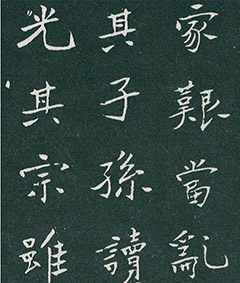 家艱當亂
其子孫讀
光其宗雖